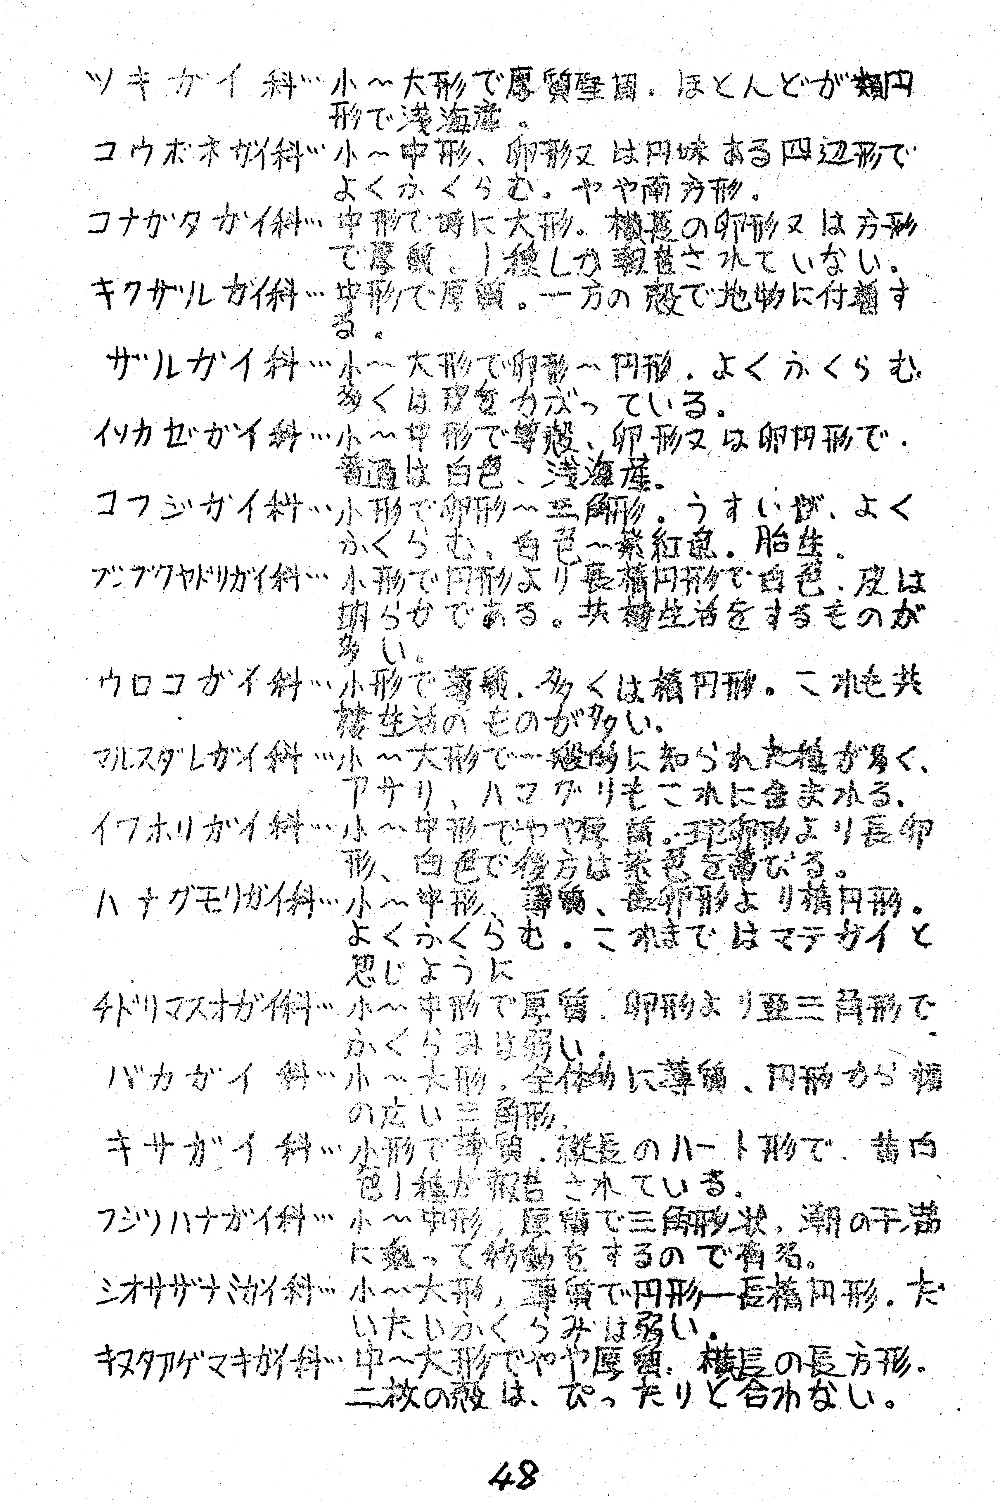 ツキガイ科…小〜大形で厚質堅固.ほとんどが類円
形で浅海産。
コウボネガイ科…小〜中形、卵形又は円味ある四辺形で
よくふくらむ。やや南方形。
コナガタガイ科…中形で時に大形。横長の卵形又は方形
で厚質.1種しか報告されていない。
キクザルガイ科…中形で厚質。一方の殻で地物に付着す
る。
ザルガイ科…小〜大形で卵形〜円形.よくふくらむ
多くは球をがっている。
イソカゼガイ科…小〜中形で等殻、卵形又は卵円形で.
普通は白色、浅海産。
コフジガイ科…小形で卵形〜三角形。うすいが、よく
ふくらむ、白色〜紫紅色.胎生.
ブンブクヤドリガイ科…小形で円形より長楕円形で白色、皮は
明らかである。共棲生活をするものが
多い。
ウロコガイ科…小形で薄質.多くは楕円形。これも共
棲生活のものが多い.
マルスダレガイ科…小〜大形で一般的に知られた種が多く、
アサリ、ハマグリもこれに含まれる.
イワホリガイ科…小〜中形でやや厚質。球卵形より長卵
形、白色で後方は茶色を帯びる。
ハナグモリガイ科…小〜中形、薄質、長卵形より楕円形。
よくふくらむ.これまではマテガイと
思じように
チドリマスオガイ科…小〜中形で厚質.卵形より亜三角形で
ふくらみは弱い.
バカガイ科…小〜大形.全体的に薄質、円形から幅
の広い三角形.
キサガイ科…小形で薄質.縦長のハート形で.黄白
色1種が報告されている。
フジノハナガイ科…小〜中形,厚質で三角形状.潮の干満
に乗って移動をするので有名。
シオサザナミガイ科…小〜大形,薄質で円形―長楕円形.だ
いたいふくらみは弱い.
キヌタアゲマキガイ科…中〜大形でやや厚質.横長の長方形.
二枚の殻は、ぴったりと合わない。
48